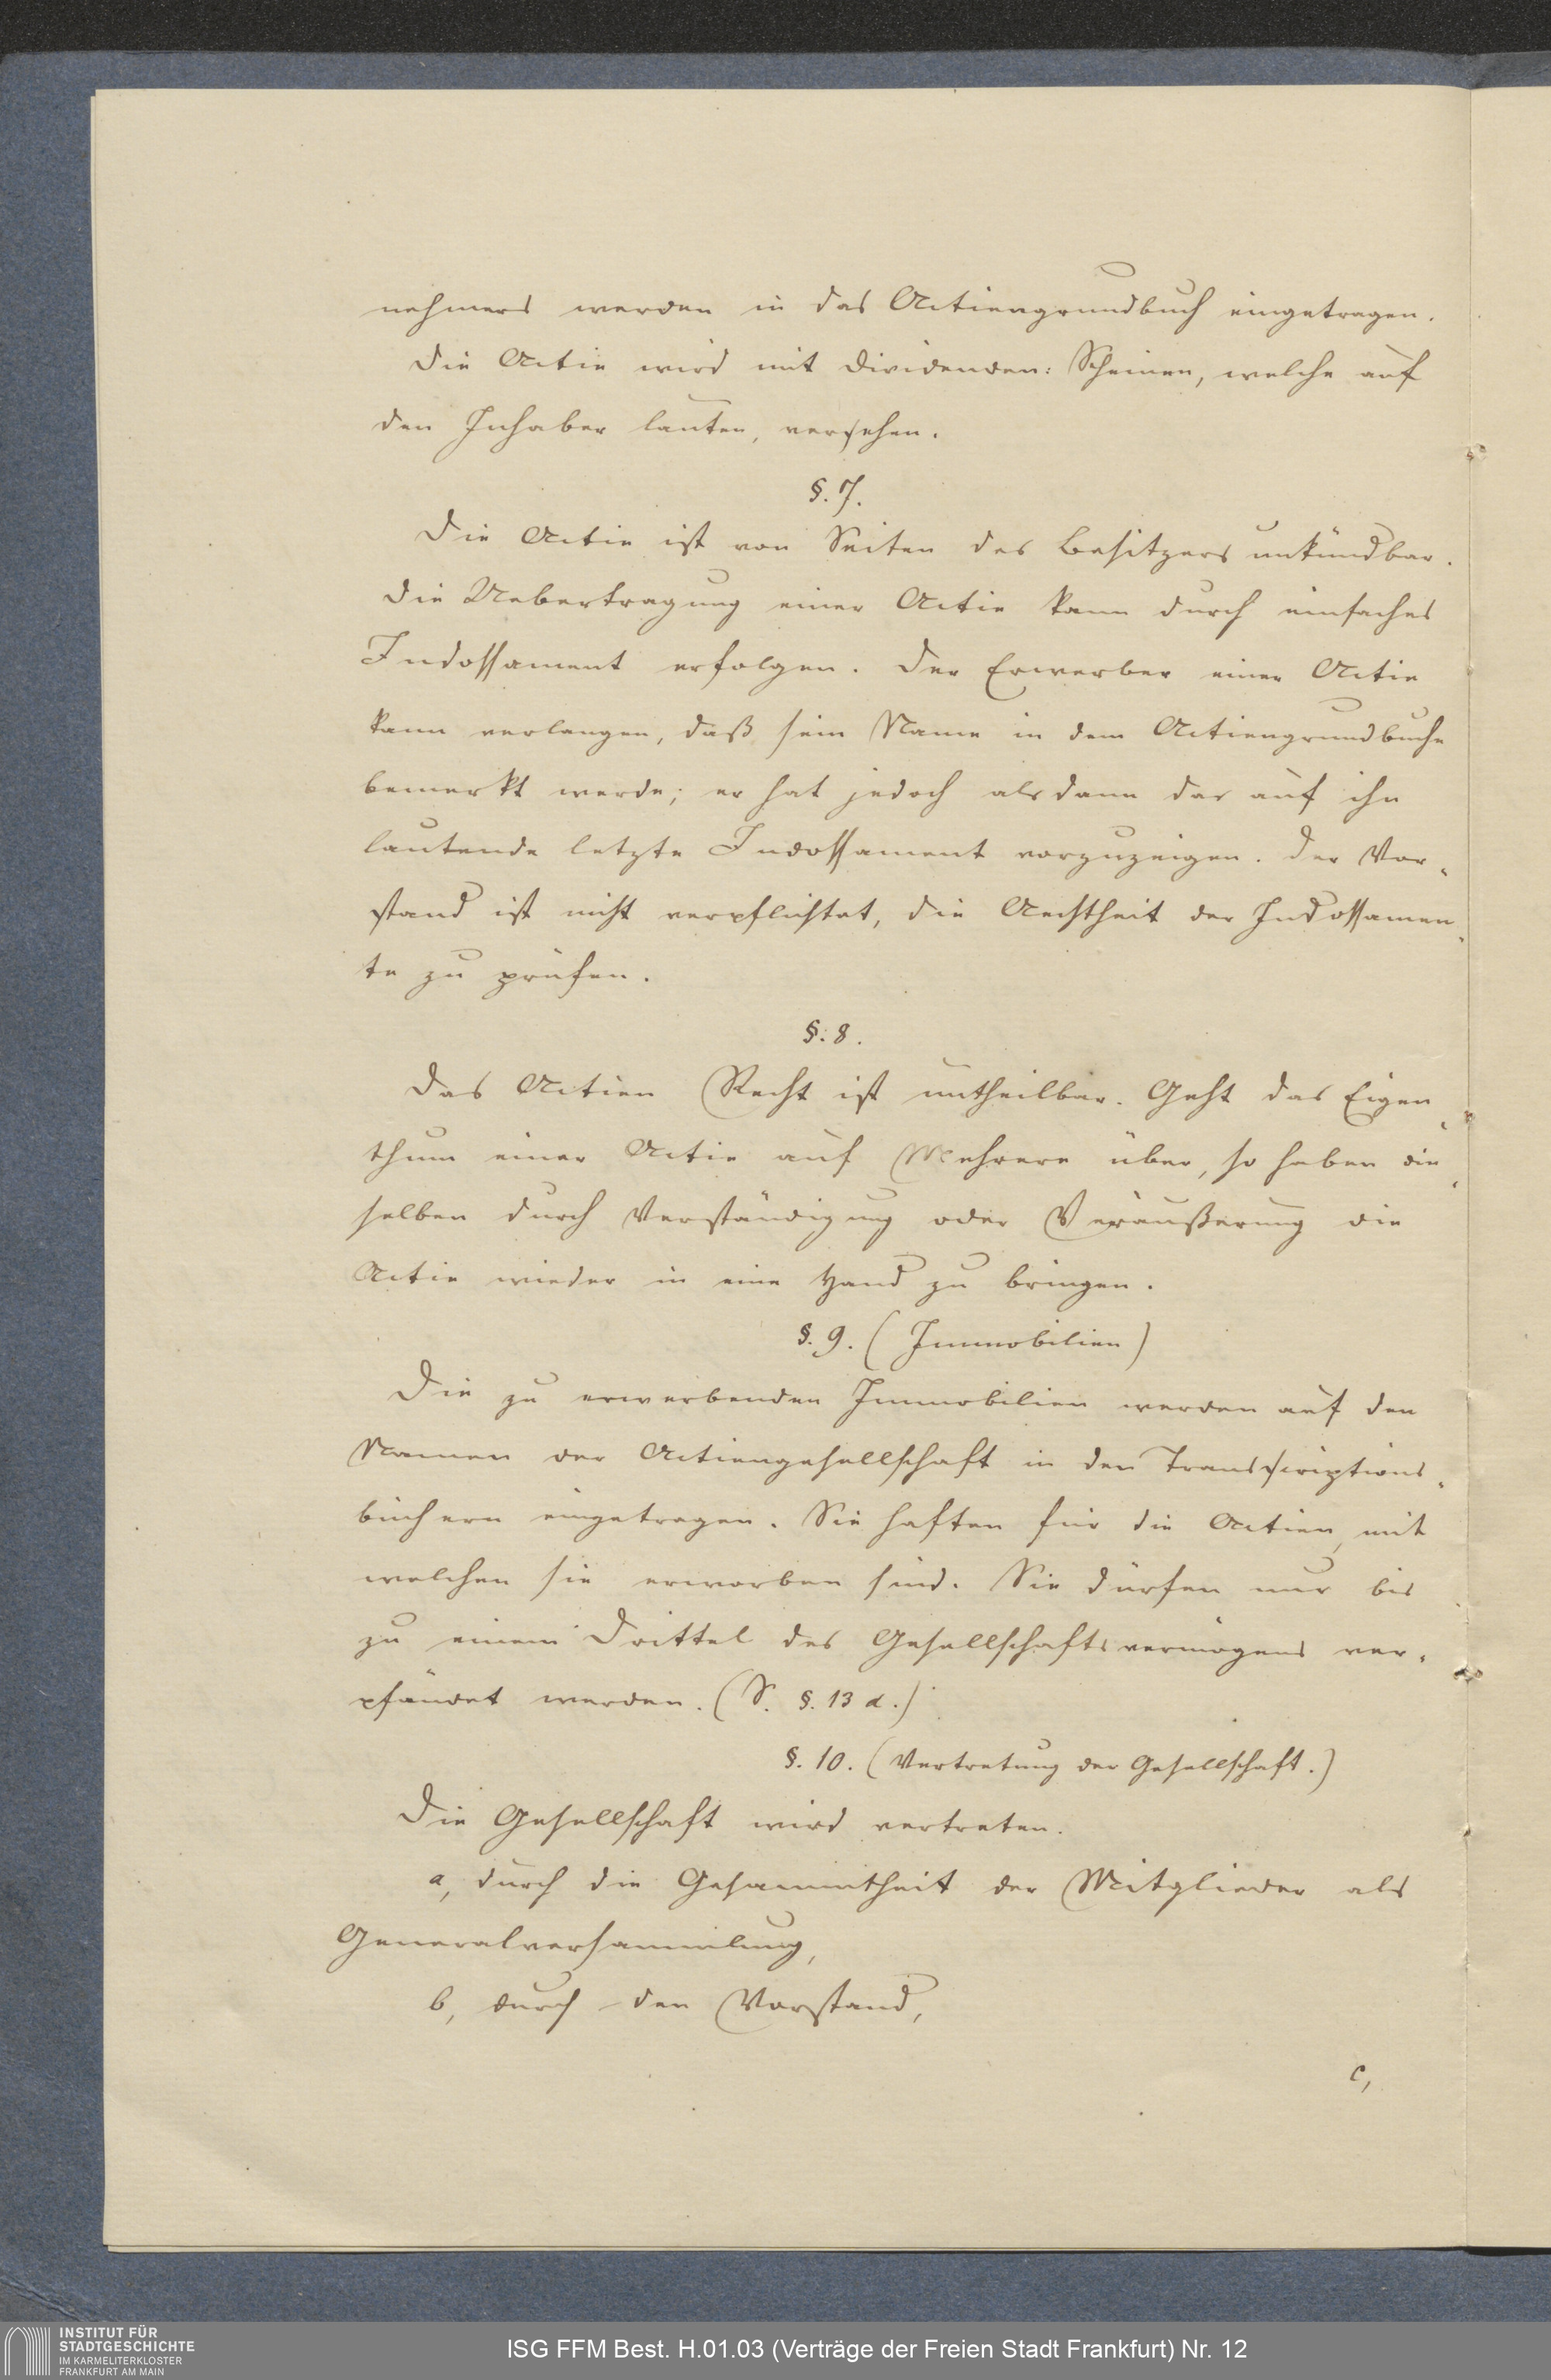 nehmers werden in das Actiengrundbuch eingetragen.
Die Actie wird mit Dividenden: Scheinen, welche auf
den Inhaber lauten, versehen.
§. 7.
Die Actie ist von Seiten des Besitzers unkündbar.
Die Uebertragung einer Actie kann durch einfaches
Indossament erfolgen. Der Erwerber einer Actie
kann verlangen, daß sein Name in dem Actiengrundbuche
bemerkt werde; er hat jedoch alsdann das auf ihn
lautende letzte Indossament vorzuzeigen. Der Vor-
stand ist nicht verpflichtet, die Aechtheit der Indossamen-
te zu prüfen.
§. 8.
Das Actien Recht ist untheilbar. Geht das Eigen-
thum einer Actie auf Mehrere über, so haben die-
selben durch Verständigung oder Veräußerung die
Actie wieder in eine Hand zu bringen.
§. 9. (Immobilien)
Die zu erwerbenden Immobilien werden auf den
Namen der Actiengesellschaft in den Transscriptions-
büchern eingetragen. Sie haften für die Actien, mit
welchen sie erworben sind. Sie dürfen nur bis
zu einem Drittel des Gesellschaftsvermögens ver-
pfändet werden. (S. §. 13 d.)
§. 10. (Vertretung der Gesellschaft.)
Die Gesellschaft wird vertreten.
a, durch die Gesammtheit der Mitglieder als
Generalversammlung,
b, durch den Vorstand,
c,
INSTITUT FÜR
STADTGESCHICHTE
IM KARMELITERKLOSTER
FRANKFURT AM MAIN
ISG FFM Best. H.01.03 (Verträge der Freien Stadt Frankfurt) Nr. 12